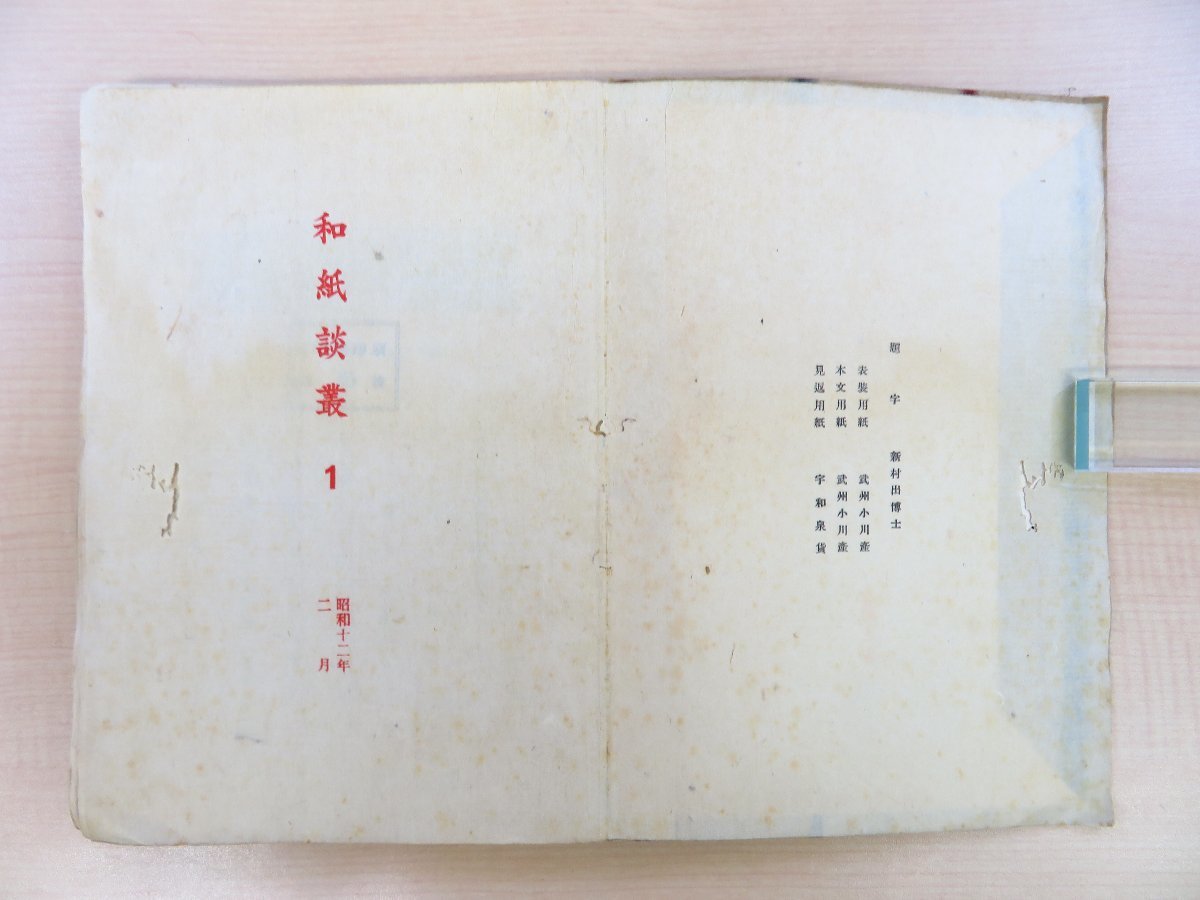 題字 新村出博士
表裝用紙 武州小川產
本文用紙 武州小川產
見返用紙 宇和泉貨
和紙談叢 1
昭和十二年
二月